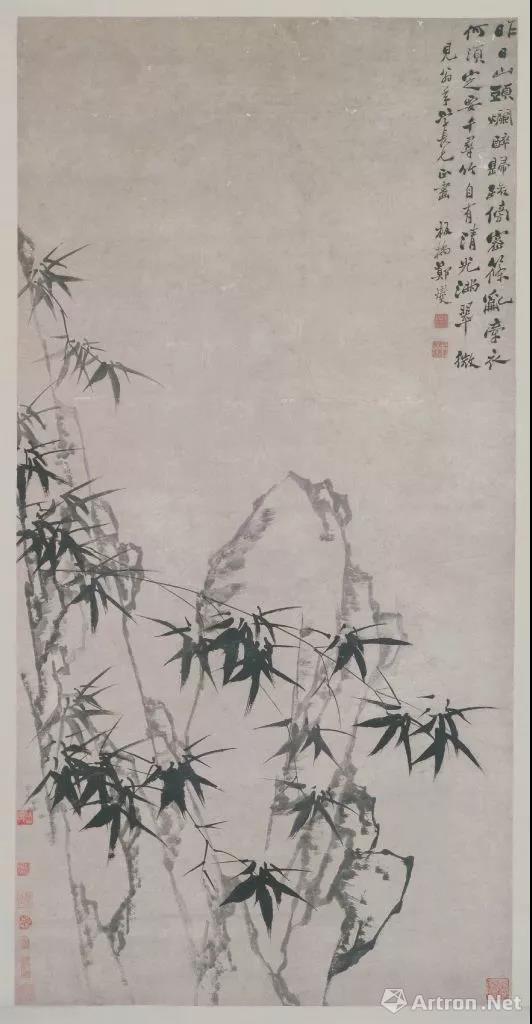 昨日山頭爛醉歸踏傍密篠亂牽衣
何須定要千尋竹自有清光滿翠微
見翁年學長兄正畫 板橋鄭燮
Artron.Net